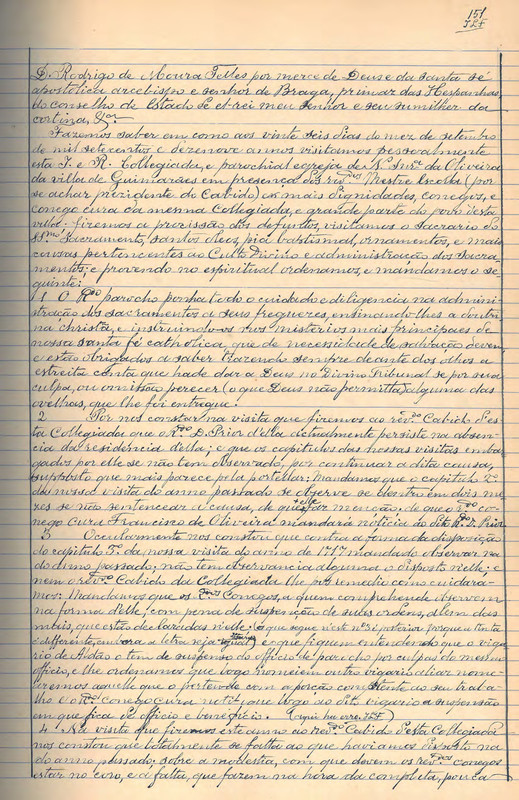 151
J.L.F.
D. Rodrigo de Moura Telles por merce de Deus e da santa sé
apostolica arcebispo e senhor de Braga, primaz das Hespanhas
do conselho de Estado de el-rei meu senhor e seu sumilher da
cortina, &ª.
Fazemos saber em como aos vinte seis dias do mez de setembro
de mil setecentos e dezenove annos visitamos pessoalmente
esta I. e R. Collegiada, e parochial egreja de N. Snrª. da Oliveira
da villa de Guimarães em presença dos revdos Mestre Escola (por
se achar prezidente do Cabido) as mais dignidades, conegos, e
conego cura da mesma Collegiada, e grande parte do povo desta
villa: fizemos a procissão dos defuntos, visitamos o sacrario do
SSmo Sacramento, santos oleos, pia baptismal, ornamentos, e mais
cousas pertencentes ao Culto Divino e administração dos sacra-
mentos: e provendo no espiritual ordenamos, e mandamos o se-
guinte:
1 O Rdo parocho ponha todo o cuidado e diligencia na adminis-
tração dos sacramentos a seus freguezes, ensinando-lhes a doutri-
na christã, e instruindo-os nos misterios mais principaes de
nossa santa fé catholica, que de necessidade de salvação devem
e estão obrigados a saber trazendo sempre deante dos olhos a
estreita conta que hade dar a Deus no Divino Tribunal se por sua
culpa, ou omissão perecer (o que Deus não permitta) alguma das
ovelhas, que lhe foi entregue.
2 Por nos constar na visita que fizemos ao revdo Cabido d'es-
ta Collegiada que o Rdo D. Prior d'ella actualmente persiste na absen-
cia da residencia della; e que os capitulos das nossas visitas emba-
gados por elle se não tem observado, por continuar a dita causa,
supposto que mais parece pela protellar: Mandamos que o capitulo 2º
da nossa visita do anno passado se observe se dentro em dois me-
zes se não sentencear a causa, de que elle faz menção: de que o rdo co-
nego Cura Francisco de Oliveira mandará noticia ao dito Rdo D. Prior.
3 Occularmente nos constou que contra a forma da disposição
do capitulo 7. da nossa visita do anno de 1717 mandado observar na
do anno passado, não tem observancia alguma o disposto n'elle; e
nem o revdo Cabido da Collegiada lhe poz remedio como cuidara-
mos: Mandamos que os Rdos Conegos, a quem comprehende observem
na forma d'elle, com pena de suspenção de suas ordens, alem das
mais, que estão declaradas n'elle. (o que segue n'este nº 3 é posterior porque a tinta
é differente, embora a letra seja egual) e o que fiquem entendendo que o viga-
rio de Aldão o tem de suspenso do officio de parocho por culpas do mesmo
officio, e lhe ordenamos que logo nomeiem outro vigario aliaz nomea-
remos aquelle que o parecer com a porção competente ao seu traba-
lho e o Rdo conego cura notifique logo ao dito vigario a suspensão
em que fica de officio e beneficio. (aqui ha erro. J.L.F)
4 Na visita que fizemos este anno ao revdo Cabido desta Collegiada
nos constou que totalmente se falta ao que haviamos disposto na
do anno passado, sobre a modestia, com que devem os revdos conegos
estar no coro, e a falta, que fazem na hora da completa, pouca